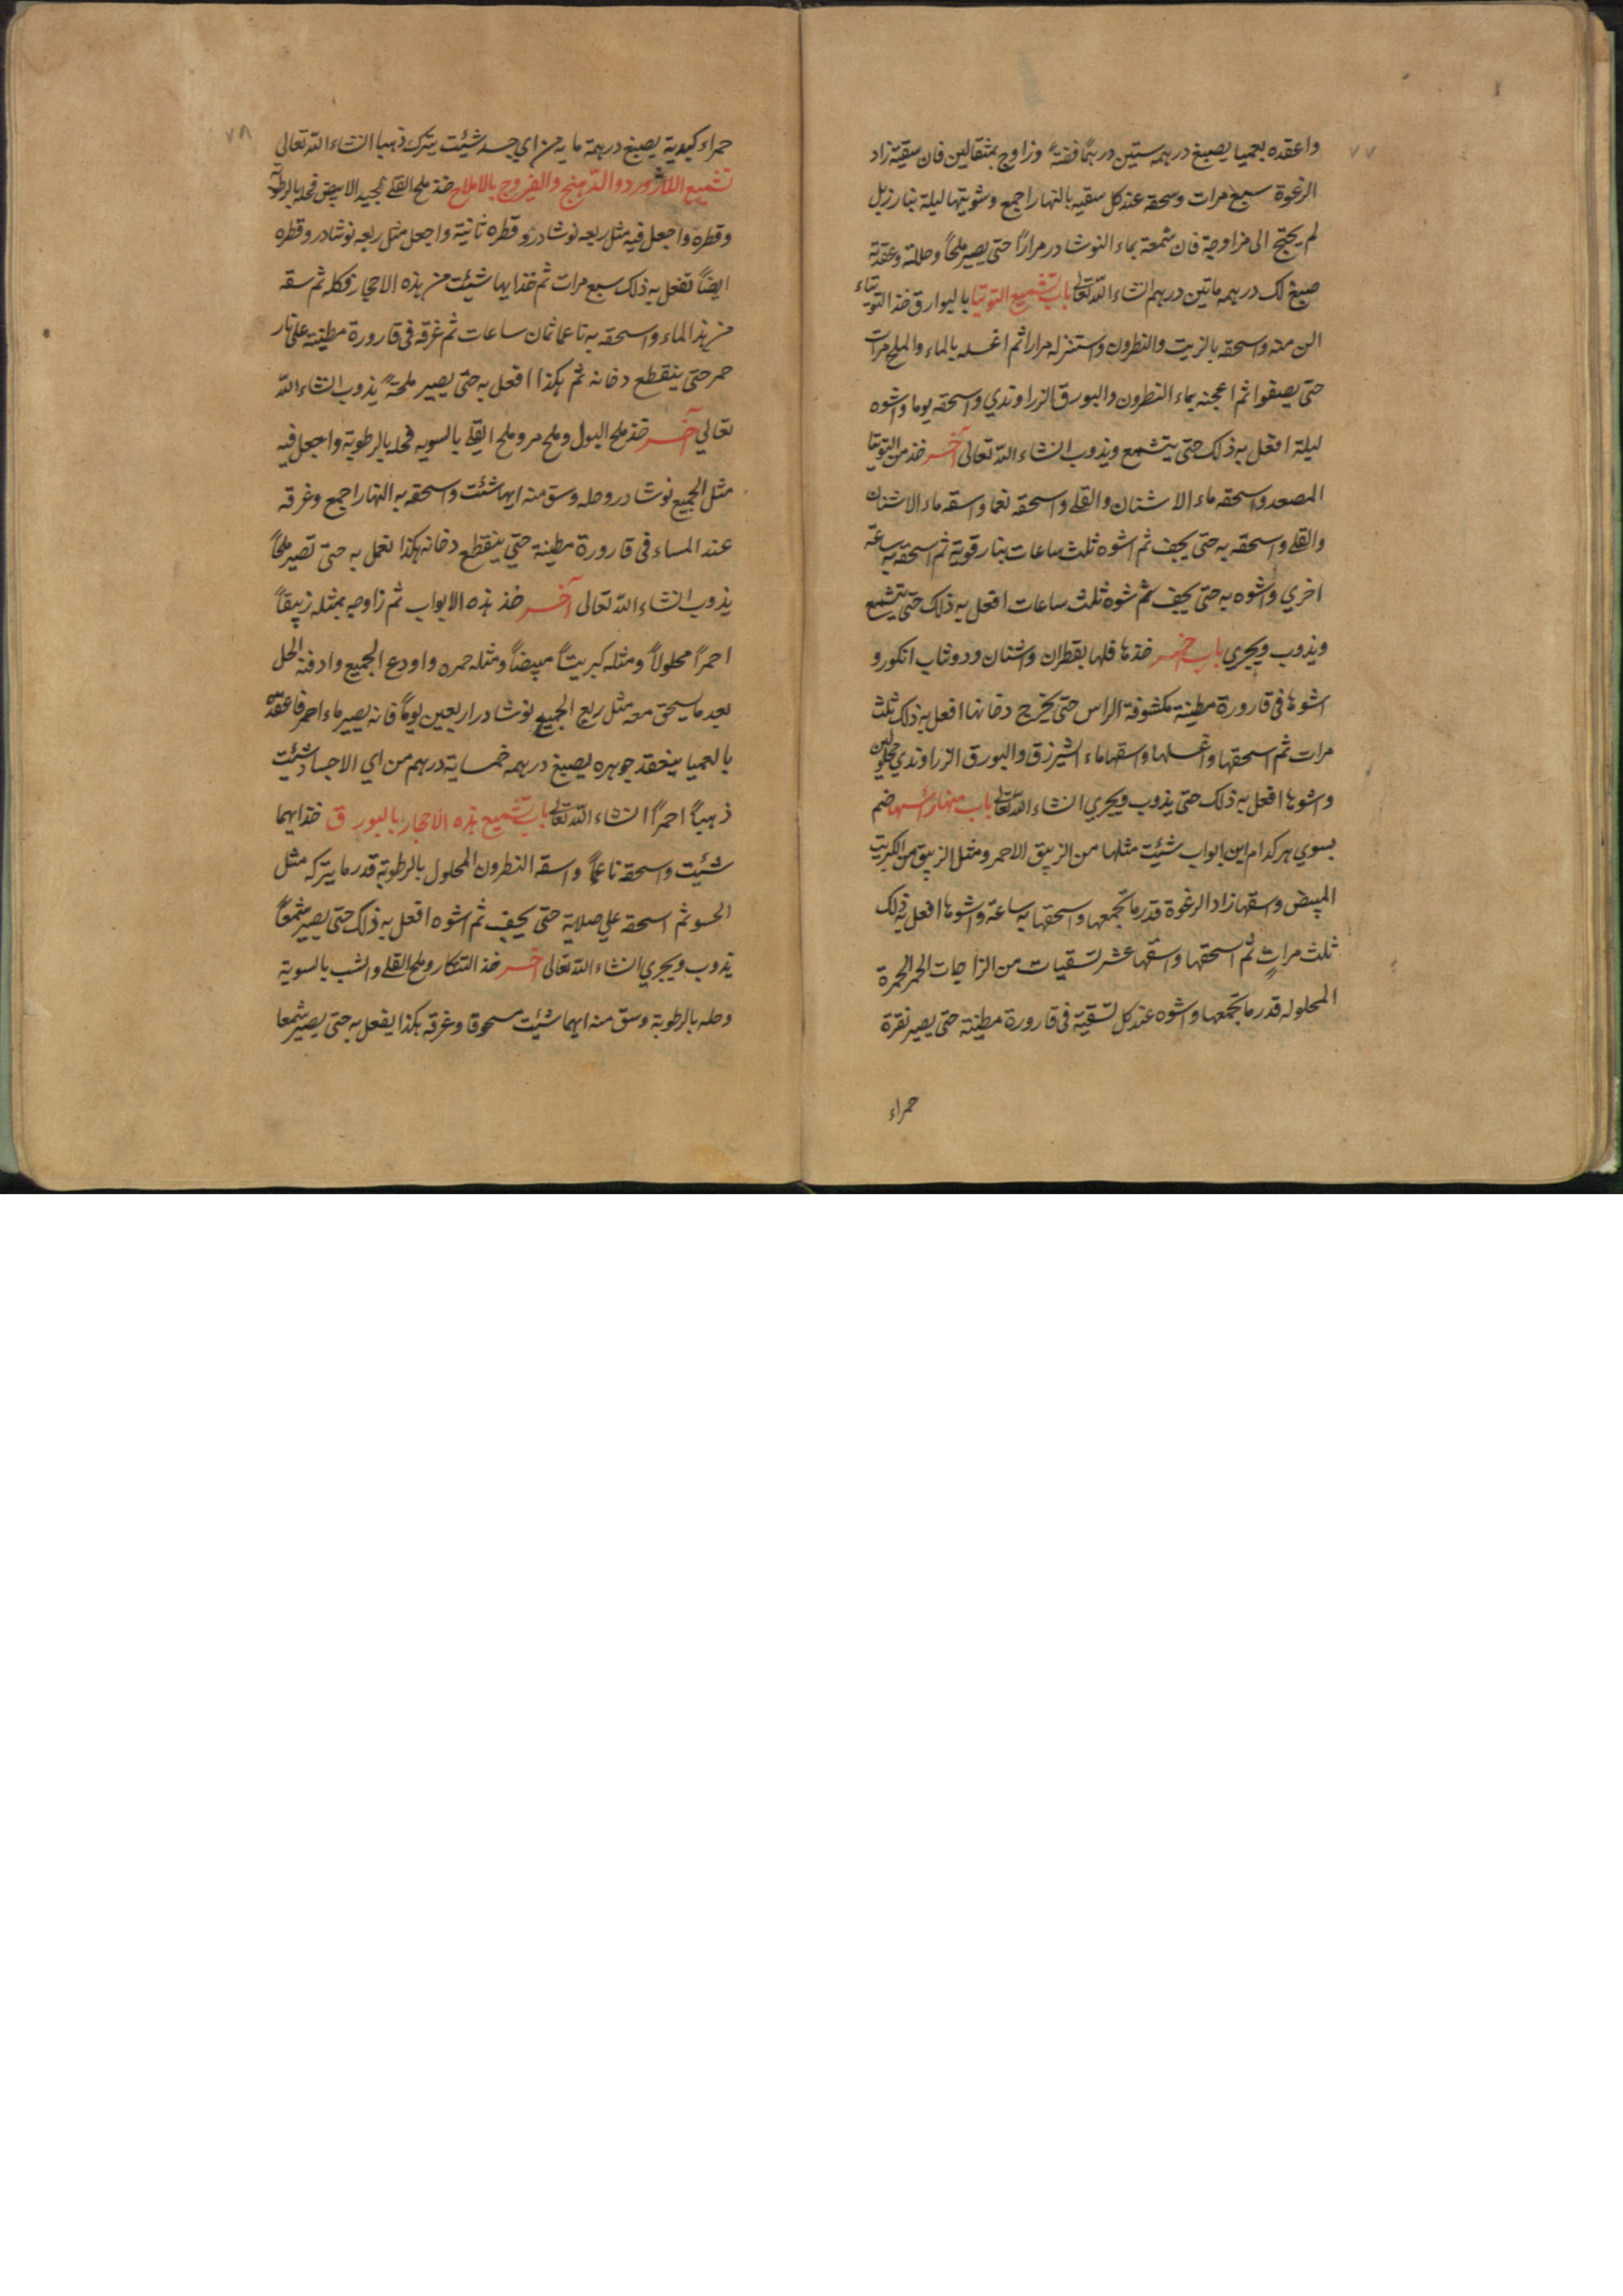 ٧٧
واعقده بعميا يصبغ درهمه ستين درهمًا فضةً وزاوج بمثقالين فان سقيته زاد
الرغوة سبع مرات وسحقه عند كل سقيه بالنهار اجمع وشويتها ليلة بنار زبل
لم يحتج الى مزاوجة فان شمعته بماء النوشادر مرارًا حتى يصير ملحًا وحللته وعقدته
صبغ لك درهمه ماتين درهم انشاء الله تعالى باب تشميع التوتيا بالبوارق خذ التوتياء
الن منه واسحقه بالزيت والنطرون واستنزله مرارا ثم اغسله بالماء والملح مرات
حتى يصفوا ثم اعجنه بماء النطرون والبورق الزراوندي واسحقه يوما واشوه
ليلة افعل به ذلك حتى يتشمع ويذوب انشاء الله تعالى آخر خذ من التوتيا
المصعد واسحقه ماء الاشنان والقلي واسحقه نعما واسقه ماء الاشنان
والقلي واسحقه به حتى يجف ثم اشوه ثلث ساعات بنار قوية ثم اسحقه به ساعة
اخري واشوه به حتى يجف ثم شوه ثلث ساعات افعل به ذلك حتى يتشمع
ويذوب ويجري باب اخر خذها فلها بقطران واشنان ودوشاب انكور و
اشوها في قارورة مطينة مكشوفة الراس حتى يخرج دخانها افعل به ذلك ثلث
مرات ثم اسحقها واغسلها واسقها ماء الشيرزق والبورق الزراوندي محلولين
واشوها افعل به ذلك حتى يذوب ويجري انشاء الله تعالى باب منها رأسها ضم
بسوي هر كدام اين ابواب شئت مثلها من الزيبق الاحمر ومثل الزيبق من الكبريت
المبيض واسقها زاد الرغوة قدر ما تجمعها واسحقها به ساعة واشوها افعل به ذلك
ثلث مراتٍ ثم اسحقها واسقها عشر تسقيات من الزاجات الحمر المحمرة
المحلوله قدر ما تجمعها واشوه عند كل تسقية في قارورة مطينة حتى يصير نقرة
حمراء
٧٨
حمراء كبدية يصبغ درهمة مايه من اي جسد شئت يترك ذهبا انشاء الله تعالى
تشميع اللازورد والدهنج والفيروج بالاملاح خذ ملح القلي الجيد الابيض فحله بالرطوبة
وقطره واجعل فيه مثل ربعه نوشادر وقطره ثانية واجعل مثل ربعه نوشادر وقطره
ايضًا تفعل به ذلك سبع مرات ثم خذ ايها شئت من هذه الاحجار فكله ثم سقه
من هذا الماء واسحقه به ناعما ثمان ساعات ثم غرقه في قارورة مطينه على نار
حمر حتى ينقطع دخانه ثم هكذا افعل به حتى يصير ملحةً يذوب انشاء الله
تعالي آخر خذ ملح البول وملح مر وملح القلي بالسويه فحله بالرطوبة واجعل فيه
مثل الجميع نوشادر وحله وسق منه ايها شئت واسحقه به النهار اجمع وغرقه
عند المساء في قارورة مطينة حتي ينقطع دخانه هكذا تعمل به حتى تصير ملحًا
يذوب انشاء الله تعالى آخر خذ هذه الابواب ثم زاوجه بمثله زيبقًا
احمرًا محلولًا ومثله كبريتًا مبيضًا ومثله حمره واودع الجميع وادفنه الحل
بعد ما يسحق معه مثل ربع الجميع نوشادر اربعين يومًا فانه يصير ماء احمر فاعقده
بالعميا ينعقد جوهره يصبغ درهمه خمسماية درهم من اي الاجساد شئت
ذهبًا احمرًا انشاء الله تعالى باب تشميع هذه الاحجار بالبورق خذ ايهما
شئيت واسحقه ناعمًا واسقه النطرون المحلول بالرطوبة قدر ما يتركه مثل
الحسو ثم اسحقه علي صلاية حتى يجف ثم اشوه افعل به ذلك حتى يصير شمعًا
يذوب ويجري انشاء الله تعالى آخر خذ التنكار وملح القلي والشب بالسوية
وحله بالرطوبة وسق منه ايهما شئيت مسحوقا وغرقه هكذا يفعل به حتى يصير شمعا